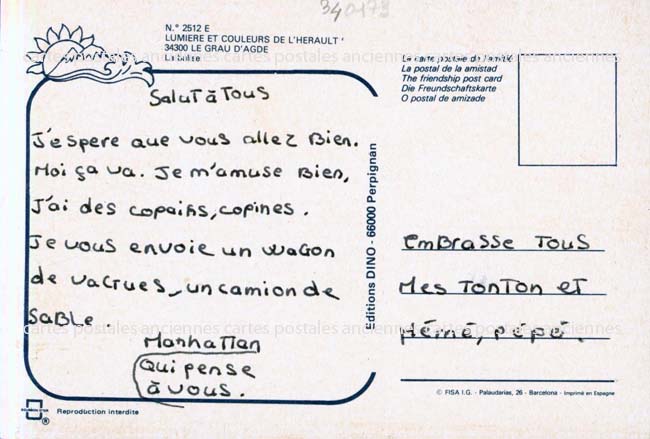 340179
N.° 2512 E
LUMIERE ET COULEURS DE L'HERAULT
34300 LE GRAU D'AGDE
La balise
cartes postales anciennes cartes postales anciennes cartes postales anciennes
Salut à Tous
J'espere que vous allez Bien.
Moi ça va. Je m'amuse Bien,
J'ai des copains, copines.
Je vous envoie un wagon
de vacrues, un camion de
saBle.
Manhattan
Qui pense
à vous.
Reproduction interdite
Editions DINO - 66000 Perpignan
La carte postale de l'amitié
La postal de la amistad
The friendship post card
Die Freundschaftskarte
O postal de amizade
emBrasse Tous
Mes Tonton et
Mémé, pépé.
cartes postales anciennes cartes postales anciennes cartes postales anciennes
© FISA I.G. - Palaudarias, 26 - Barcelona - Imprimé en Espagne